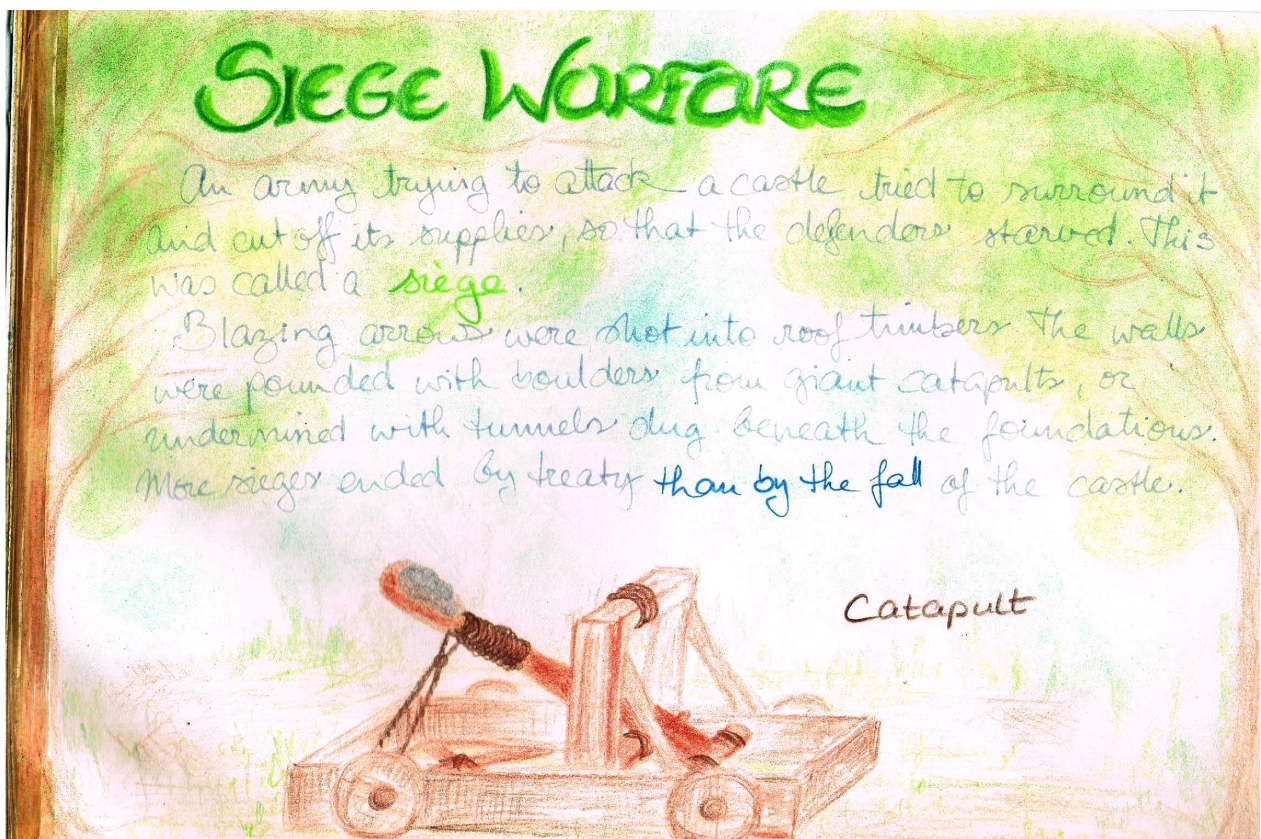 SIEGE WARFARE
An army trying to attack a castle tried to surround it
and cut off its supplies, so that the defenders starved. This
was called a siege.
Blazing arrows were shot into roof timbers The walls
were pounded with boulders from giant catapults, or
undermined with tunnels dug beneath the foundations.
More sieges ended by treaty than by the fall of the castle.
Catapult